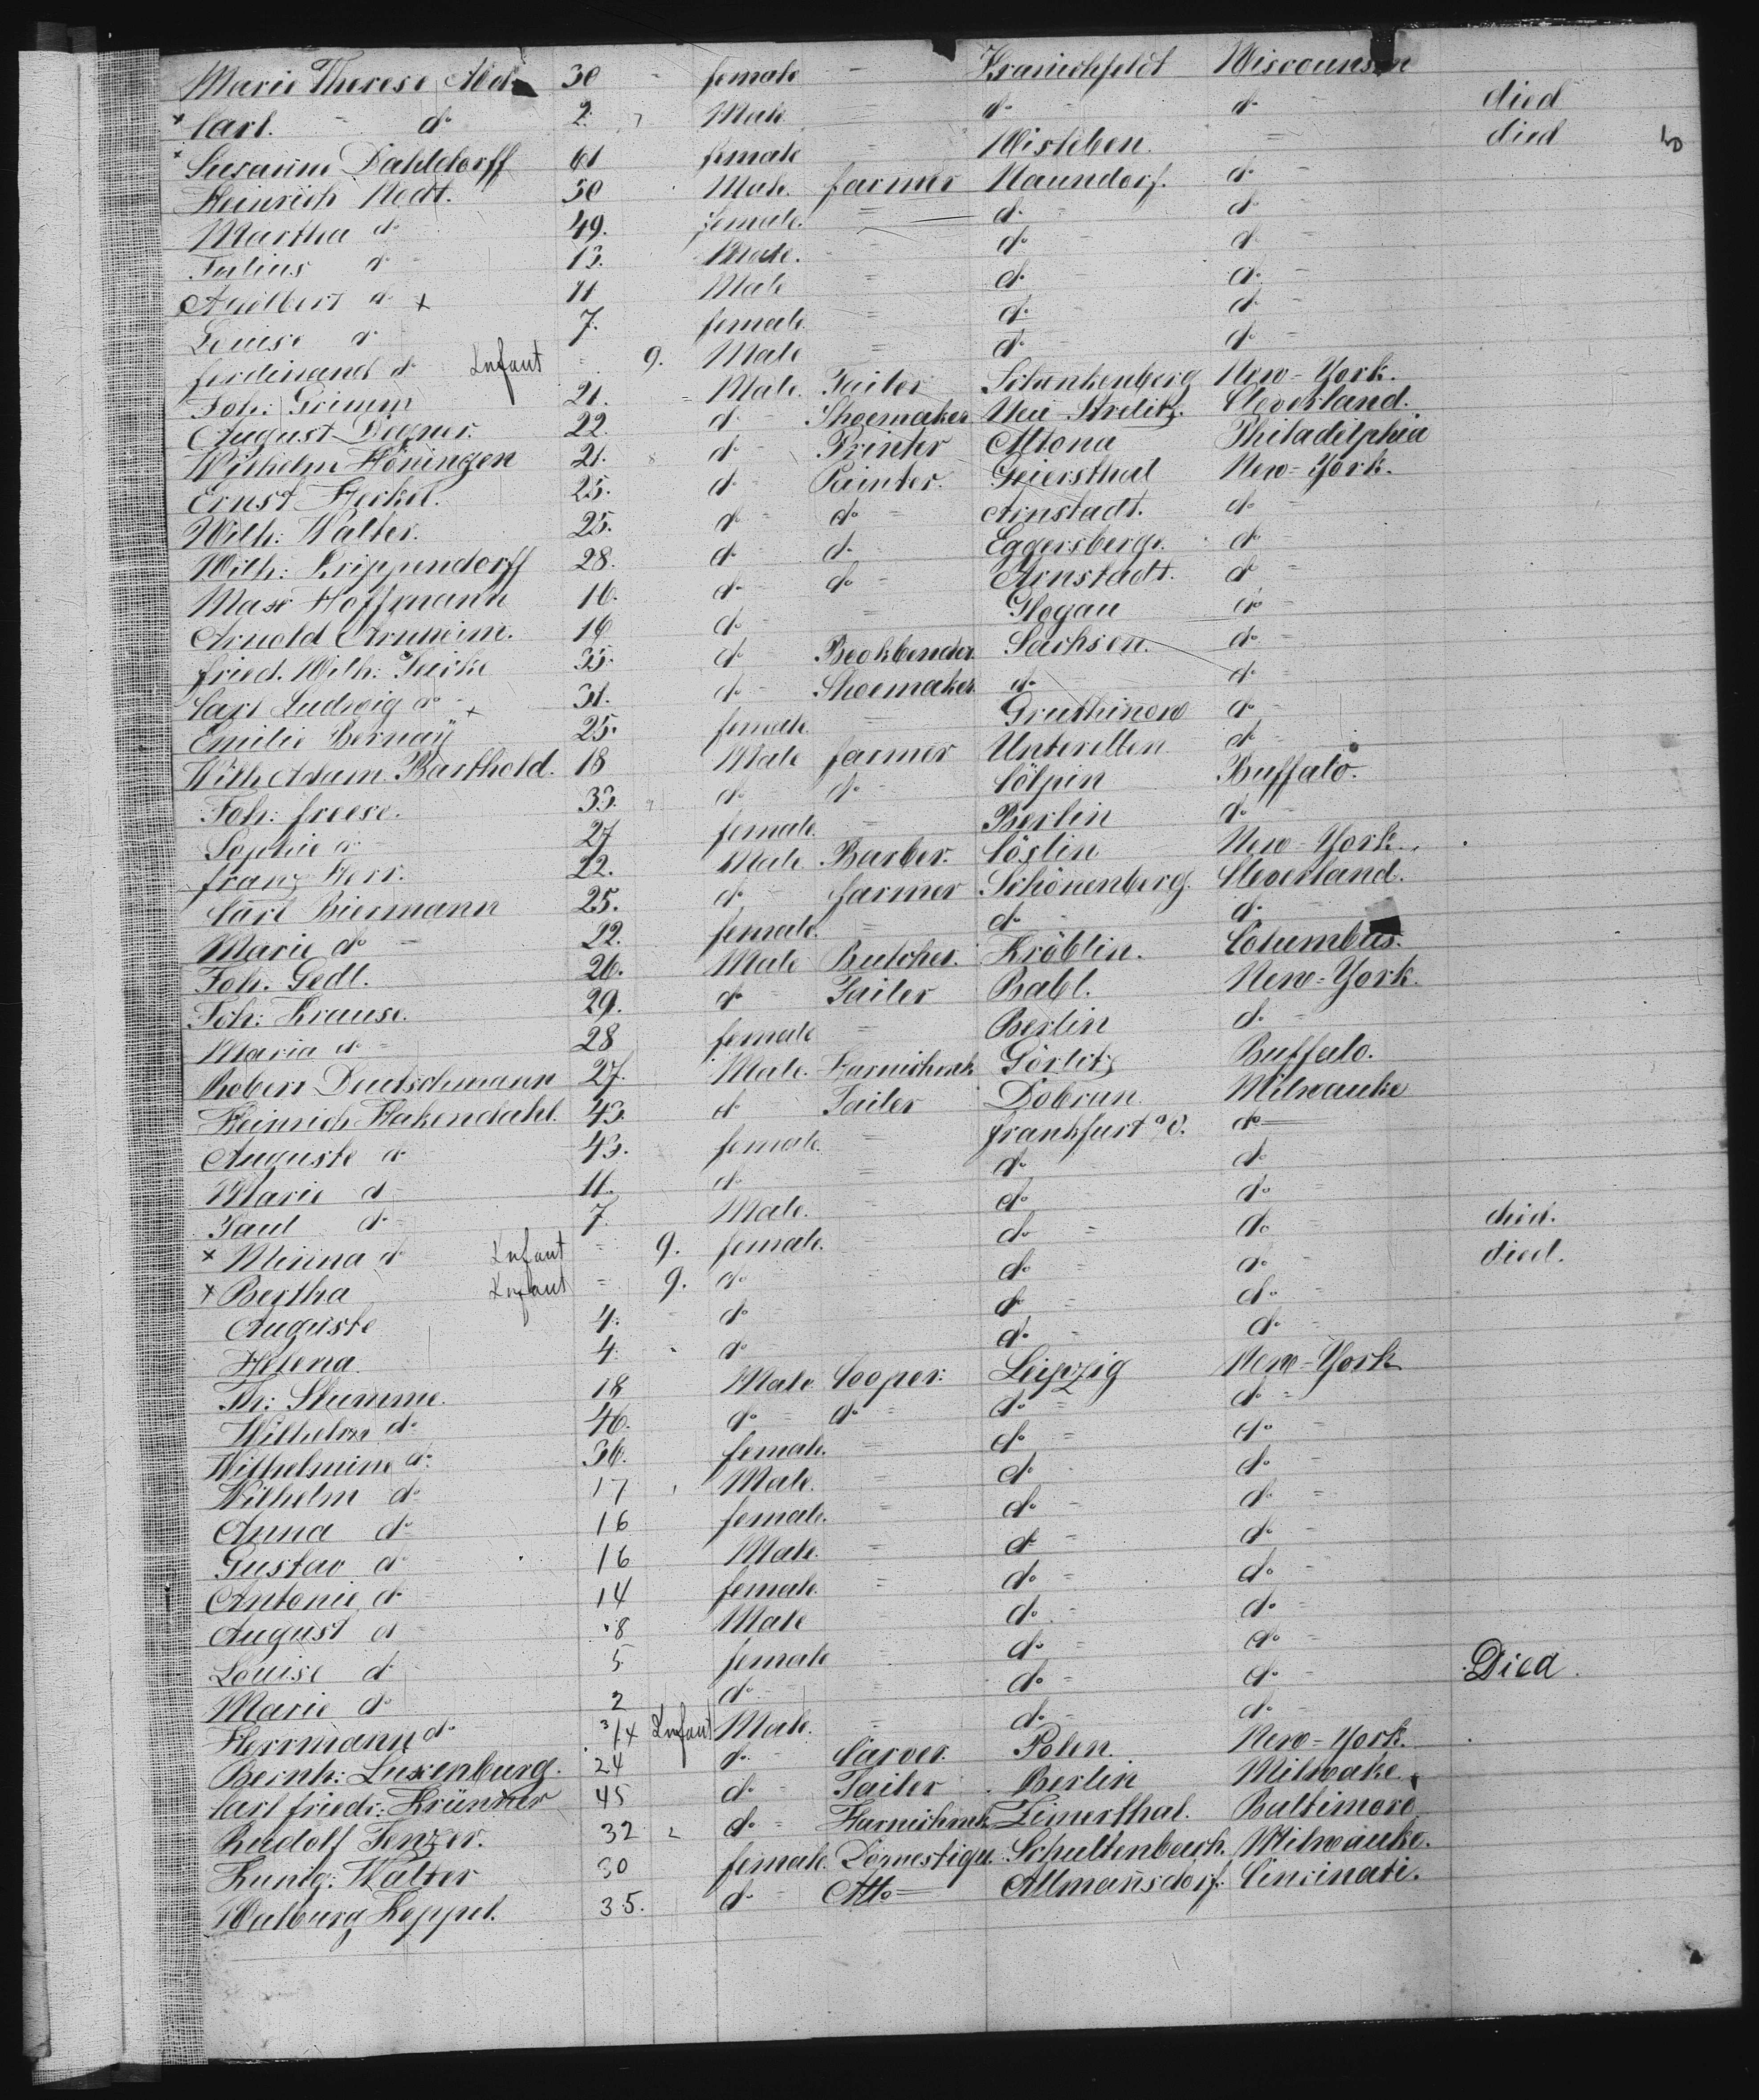 Marie Therese 30 - female - Kranichfeldt Wiscounsin
× Carl - do 2. Male = do - do - died
× Susanne Dahldorff 61 female = Wisleben = died
Heinrich Nedt. 50 Male. farmer Naundorf. do -
Martha do 49. female. = do - do -
Julius do - 13. Male. - do - do -
Adelbert do × 11 Male = do - do -
Louise do 7. female. = do - do -
ferdinand do Infant = 9. Male = do - do =
Joh: Grimm 21. Male. Tailer New-York.
August Degner. 22. do - Shoemaker Neu-Strelitz. Cleverland.
Wilhelm Höningen 21. do - Printer Altona Philadelphia
Ernst Herkel. 25. do - Painter. Geiersthal New-York.
Wilh: Walter. 25. do - do = Arnstadt. do -
Wilh: Krippendorff 28. do - do - Eggersberge. do -
Max Hoffmann 16. do - do - Arnstadt. do =
Arnold Arnheim. 16 do - = Glogau do -
fried. Wilh: 35. do Bookbender Sachsen. do -
Carl Ludwig do - × 31. do - Shoemaker. do - do -
Emilie Bernaÿ 25. female. = Gruthinow do -
Wilh Adam Barthold. 18 Male farmer Unterellen do =
Joh: freese. 33. do - do - Cölpin Buffalo.
Sophie do - 27 female. = Berlin do -
franz Herr. 22. Male Barber. Cöslin New-York.
Carl Biermann 25. do - farmer Schönenberg. Cleverland.
Marie do - 22. female. = do - do -
Joh. Gedl. 26. Male Butcher. Kröblin. Columbus.
Joh: Krause. 29. do - Tailer Babl. New-York.
Maria do = 28 female = Berlin do - =
Robert Deutschmann 27. Male. Harnishmk Görlitz Buffalo.
Heinrich Hakendahl. 43. do - Tailer Dobran Milwauke
Auguste do 43. female. = frankfurt a/O. do =
Marie do - 11. do - = do do
Paul do = 7. Male. - do do =
× Minna do Infant = 9. female. do = do = died.
× Bertha Infant = 9. do - do = do - died.
Auguste 4. do - do = do -
Helena 4. do - do - do -
Th: Stumme. 18 Male Cooper: Leipzig New-York
Wilhelm do 46. do = do = do = do =
Wilhelmine do 36. female. = do = do =
Wilhelm do 17 Male. = do - do -
Anna do 16 female. = do - do =
Gustav do 16 Male. = do = do -
Antonie do 14 female. = do = do -
August do 8 Male do - do =
Louise do 5 female do = do =
Marie do 2 do - do = do - Died.
Herrmann do 3/4 Infant Male. do - do -
Bernh: Luxenburg. 24 do - Carver. Polen. New-York.
Carl friedr: Krünner 45 do = Tailer Berlin Milwake
Rudolf Tenzer. 32 do = Harnishmk Zimerthal. Baltimore
Kunig: Walter 30 female. Domestique. Schultenbach. Milwauke.
Walburg Keppel. 35. do - Atto = Allmansdorf. Cincinati.